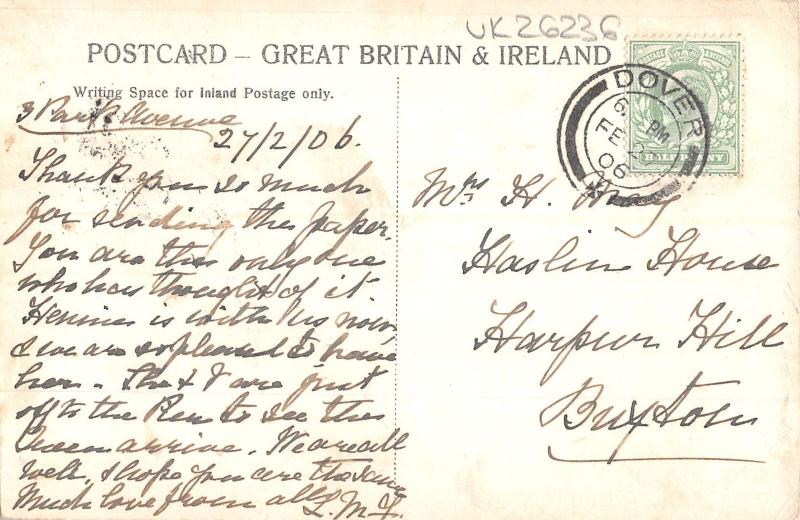 UK26236
POSTCARD – GREAT BRITAIN & IRELAND
Writing Space for Inland Postage only.
3 Park Avenue
27/2/06.
Thank you so much
for sending the paper.
You are the only one
who has thought of it
is with us now,
& we are so pleased to have
her. She & I are just
off to the to see the
Queen arrive. We are all
well, & hope you are the same
Much love from all L.M.F.
DOVER
6 PM
FE 2
06
HALFPENNY
Mrs H.
Haslin House
Harpur Hill
Buxton